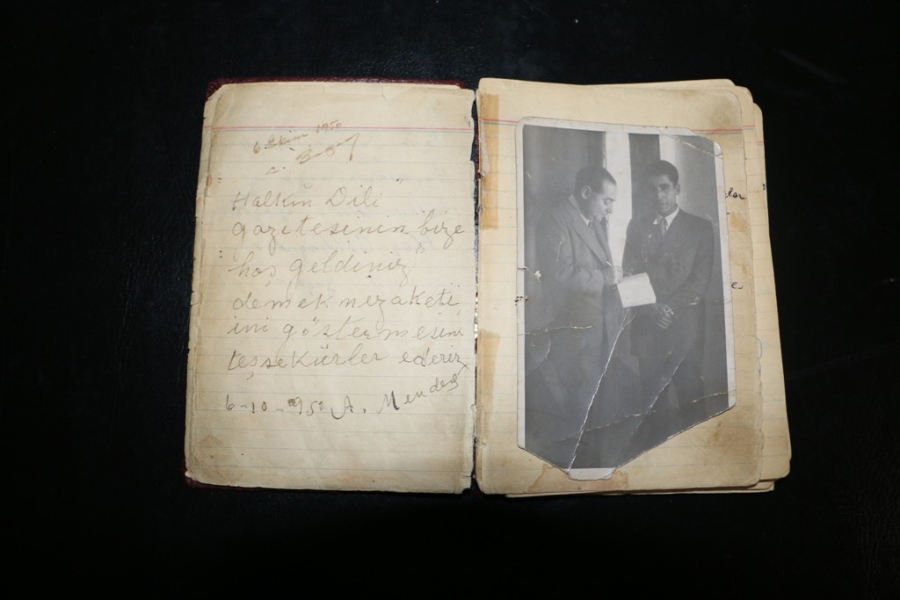 6 Ekim 1950
Halkın Dili"
gazetesinin bize
hoş geldiniz"
demek nezaketi
ini göstermesini
teşsekürler ederiz
6-10-950 A. Menderes